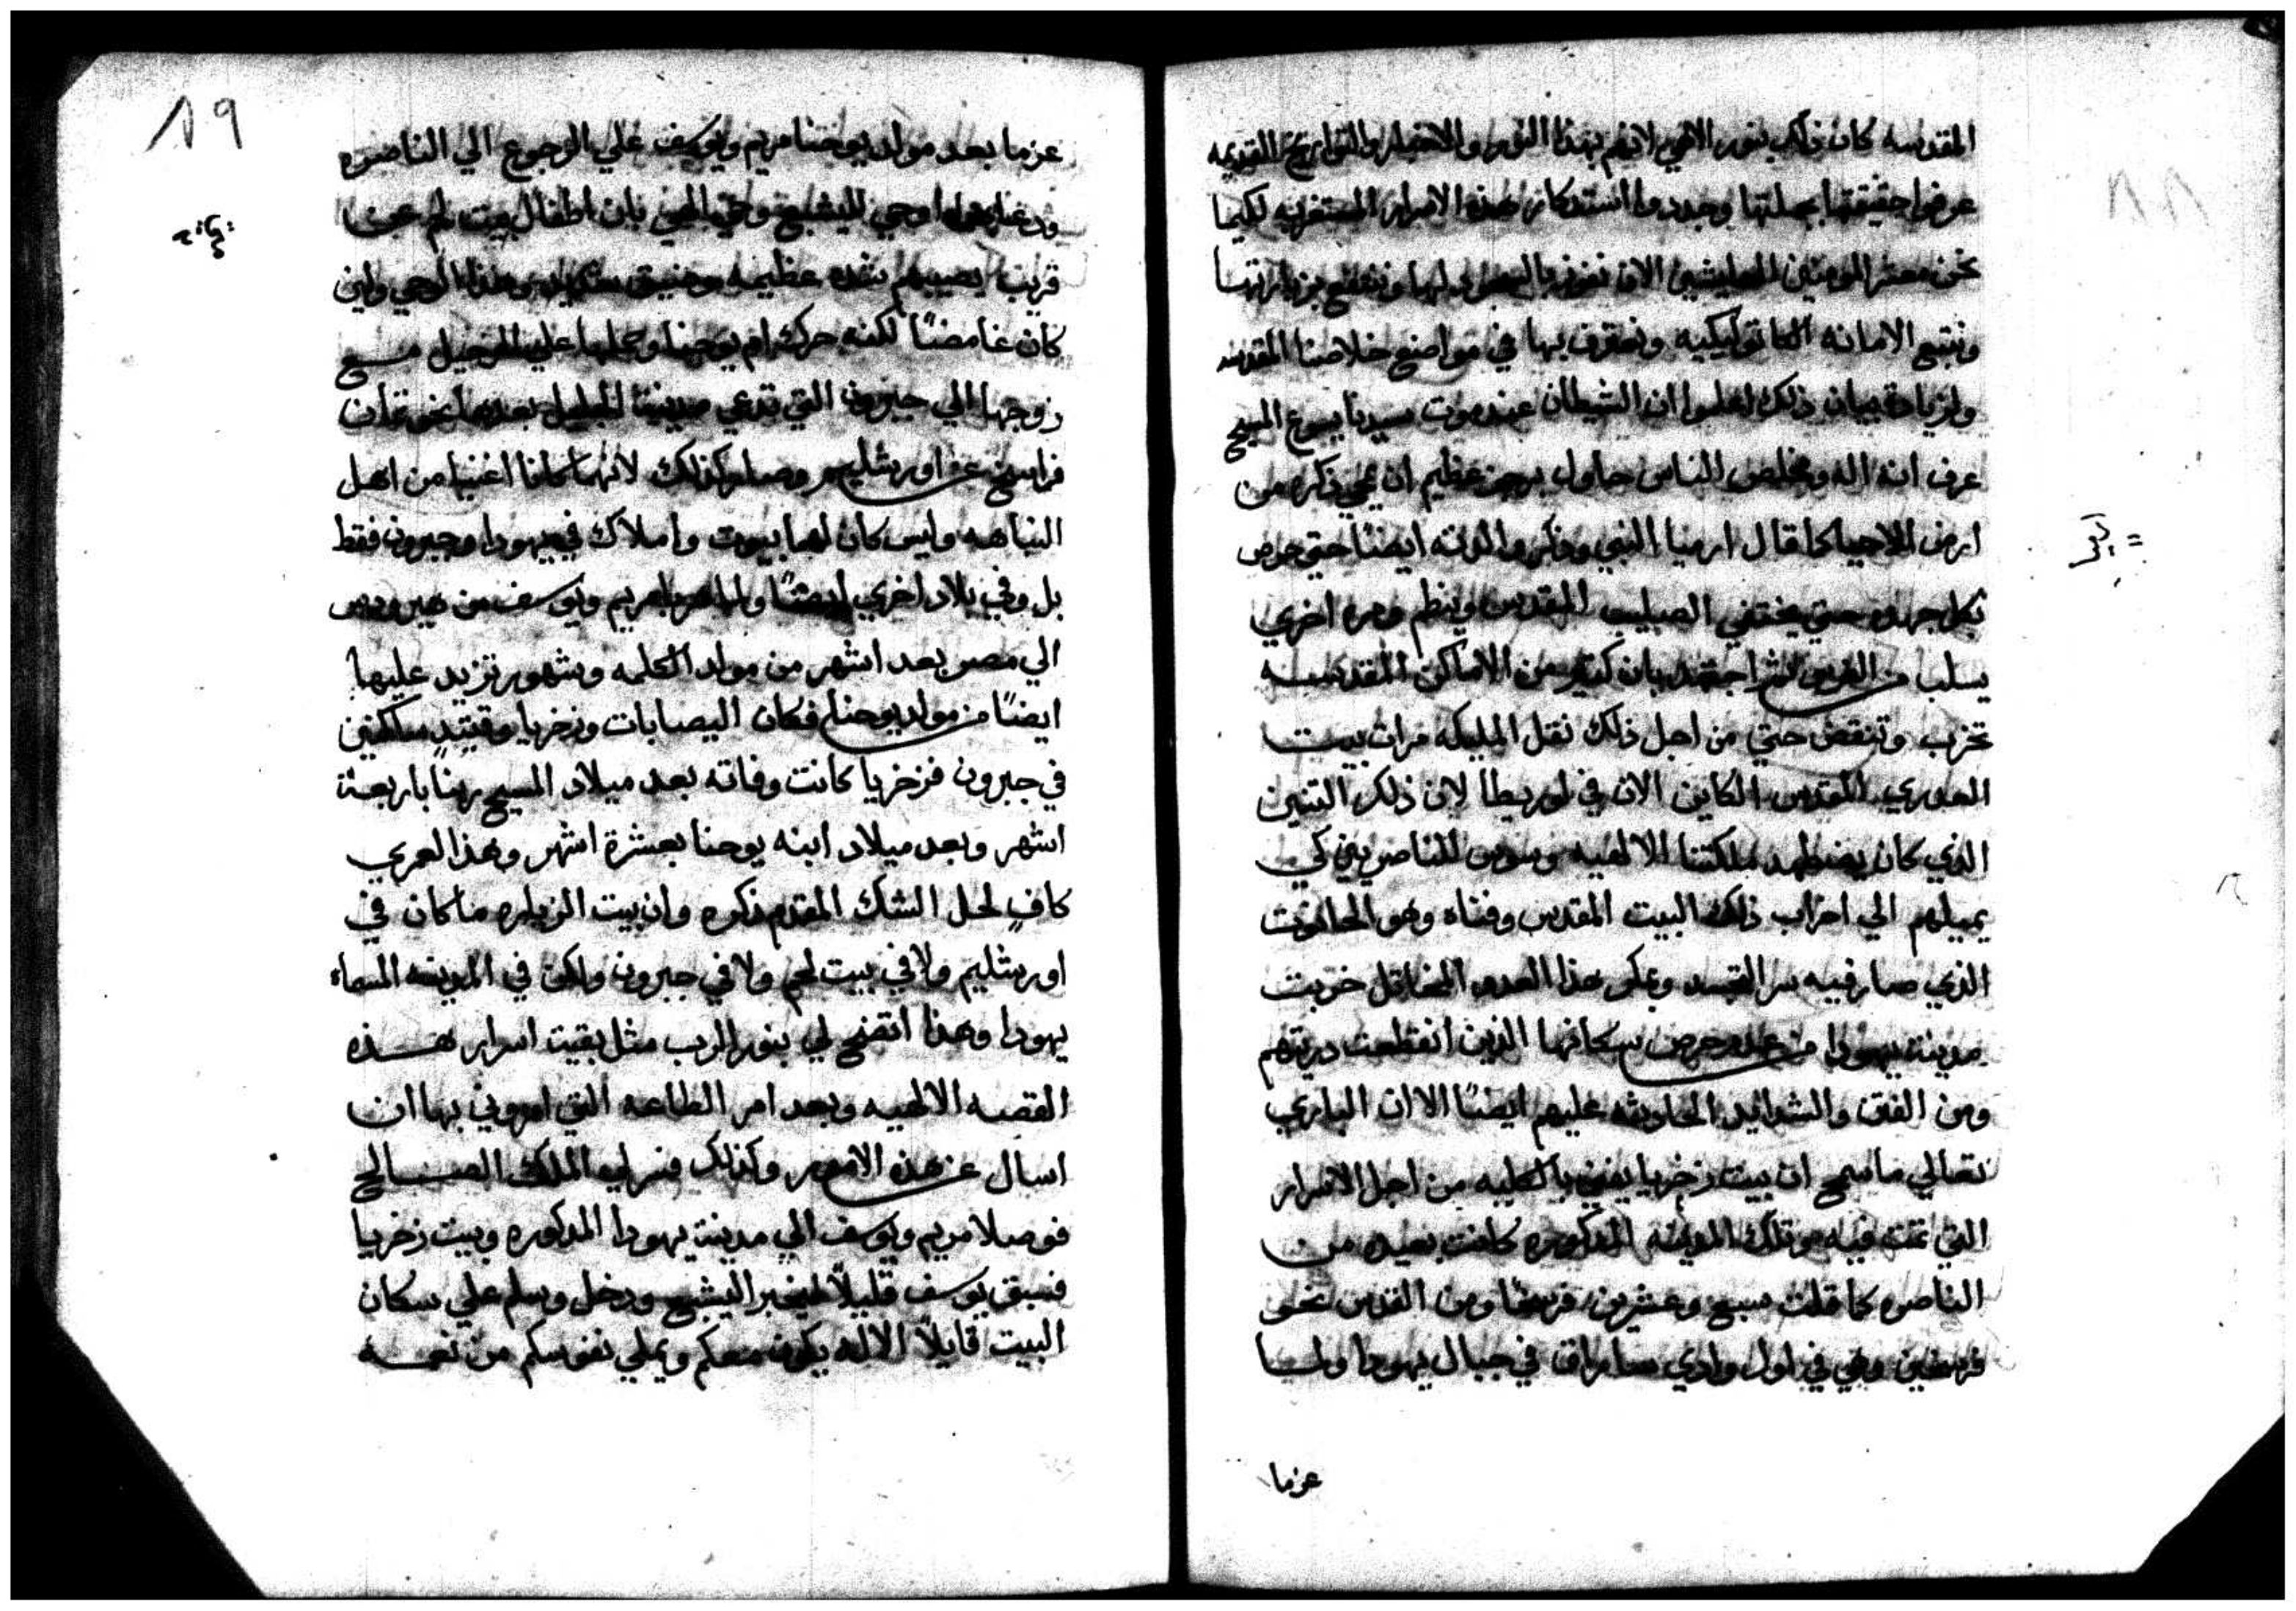 المقدسه كان ذلك بنور الاهي لانهم بهذا النور والاخبار والتواريخ القديمه
عرفوا حقيقتها بجملتها وجددوا استدكار هذه الاسرار المستغربه لكيما
نحن معشر المومنين العايشين الان نفوز بالسجود لها وننتفع بزيارتها
ونتبع الامانه الكاتوليكيه ونعترف بها في مواضع خلاصنا المقدسه
ولزيادة بيان ذلك اعلموا ان الشيطان عند موت سيدنا يسوع المسيح
عرف انه اله ومخلص الناس حاول برجز عظيم ان يمحي ذكره من
ارض الاحيا كما قال ارميا النبي وذكر والدته ايضًا حتي حرص
بكل جهده حتي يختفي الصليب المقدس وينطم ومره اخري
يسلب من الفرس ثم اجتهد بان كثير من الاماكن المقدسه
تخرب وتنقض حتي من اجل ذلك نقل المليكه مرات بيت
العدري المقدس الكاين الان في لوريطا لان ذلك التنين
الذي كان يضطهد ملكتنا الالهيه وسوس للناصريين كي
يميلهم الي اخراب ذلك البيت المقدس وفناه وهو الحانوت
الذي صار فيه سر التجسد وبمكر هذا العدو المخاتل خربت
مدينة يهودا من عدم حرص سكانها الذين انقطعت دريتهم
ومن الفتن والشدايد الحادثه عليهم ايضًا الا ان الباري
تعالي ما سمح ان بيت زخريا يفني بالكليه من اجل الاسرار
التي تمت فيه وتلك المدينه المدكوره كانت بعيده من
الناصره كما قلت سبع وعشرين فرسخًا ومن القدس نحو
فرسخين وهي في اول وادي ساراق في جبال يهودا ولما
عزما
19
عزما بعد مولد يوحنا مريم ويوسف علي الرجوع الي الناصره
وحي الهي بان اطفال بيت لحم عن
قريب يصيبهم شده عظيمه وضيق شديد وهذا الوحي ولين
كان غامضًا لكنه حرك ام يوحنا وحملها علي الرحيل مع
زوجها الي حبرون التي تدعي مدينة الخليل بعدها نحو تمان
فراسخ عن اورشليم وصار كذلك لانهما كانا اغنيا من اهل
النباهه وليس كان لهما بيوت واملاك في يهودا وحبرون فقط
بل وفي بلاد اخري ايضًا ولما هربا مريم ويوسف من هيرودس
الي مصر بعد اشهر من مولد الكلمه وشهور تزيد عليها
ايضًا من مولد يوحنا فكان اليصابات وزخريا وقتيدٍ ساكنين
في حبرون فزخريا كانت وفاته بعد ميلاد المسيح ربنا باربعة
اشهر وبعد ميلاد ابنه يوحنا بعشرة اشهر وهذا لعمري
كافٍ لحل الشك المقدم ذكره وان بيت الزياره ما كان في
اورشليم ولا في بيت لحم ولا في حبرون ولكن في المدينه المسماه
يهودا وهذا اتضح لي بنور الرب مثل بقيت اسرار هذه
القصه الالهيه وبعد امر الطاعه التي امروني بها ان
اسال عن هذه الامور وكذلك فسر لي الملاك الصالح
فوصلا مريم ويوسف الي مدينة يهودا المدكوره وبيت زخريا
فسبق يوسف قليلًا ليخبر اليشبع ودخل وسلم علي سكان
البيت قايلًا الاله يكون معكم ويملي نفوسكم من نعمه